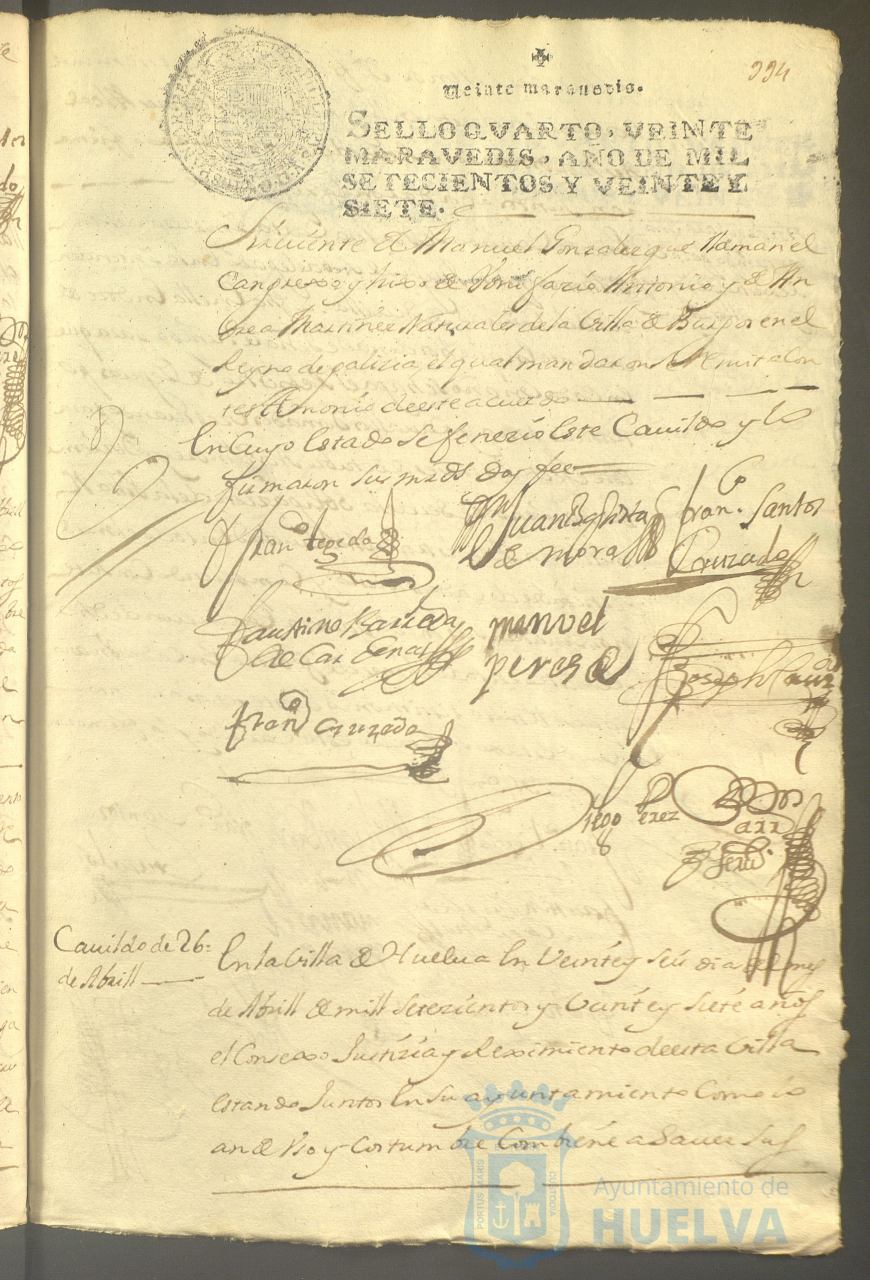 394
Veinte maravedis.
SELLO QVARTO, VEINTE
MARAVEDIS, AÑO DE MIL
SETECIENTOS Y VEINTE Y
SIETE.
Manuel Gonzalez que llaman el
Cangrexo y hixo de Bonifazio Antonio y de An
drea Martinez Naturales de la Villa de en el
Reyno de galizia, el qual mandaron se Remita Con
testimonio de este acuerdo
En Cuyo Estado se fenezio Este Cavildo y lo
firmaron sus mrds doy fee
Fran.co texeda
Juan Baptista
de Mora
Fran.co Santos
Cruzado
Faustino Barreda
de Cardenas
manuel
peres
Joseph Cruz
Fran.co Cruzado
Diego Perez
Cavildo de 26
de Abrill
En la Villa de Huelva En Veinte y seis dia del mes
de Abrill de mill setezientos y Veinte y siete años
el Consexo Justizia y Reximiento de esta Villa
estando Juntos En su ayuntamiento Como lo
an de Vso y Costumbre Combiene a Saver Sus
PORTUS MARIS
CUSTODIA
Ayuntamiento de
HUELVA